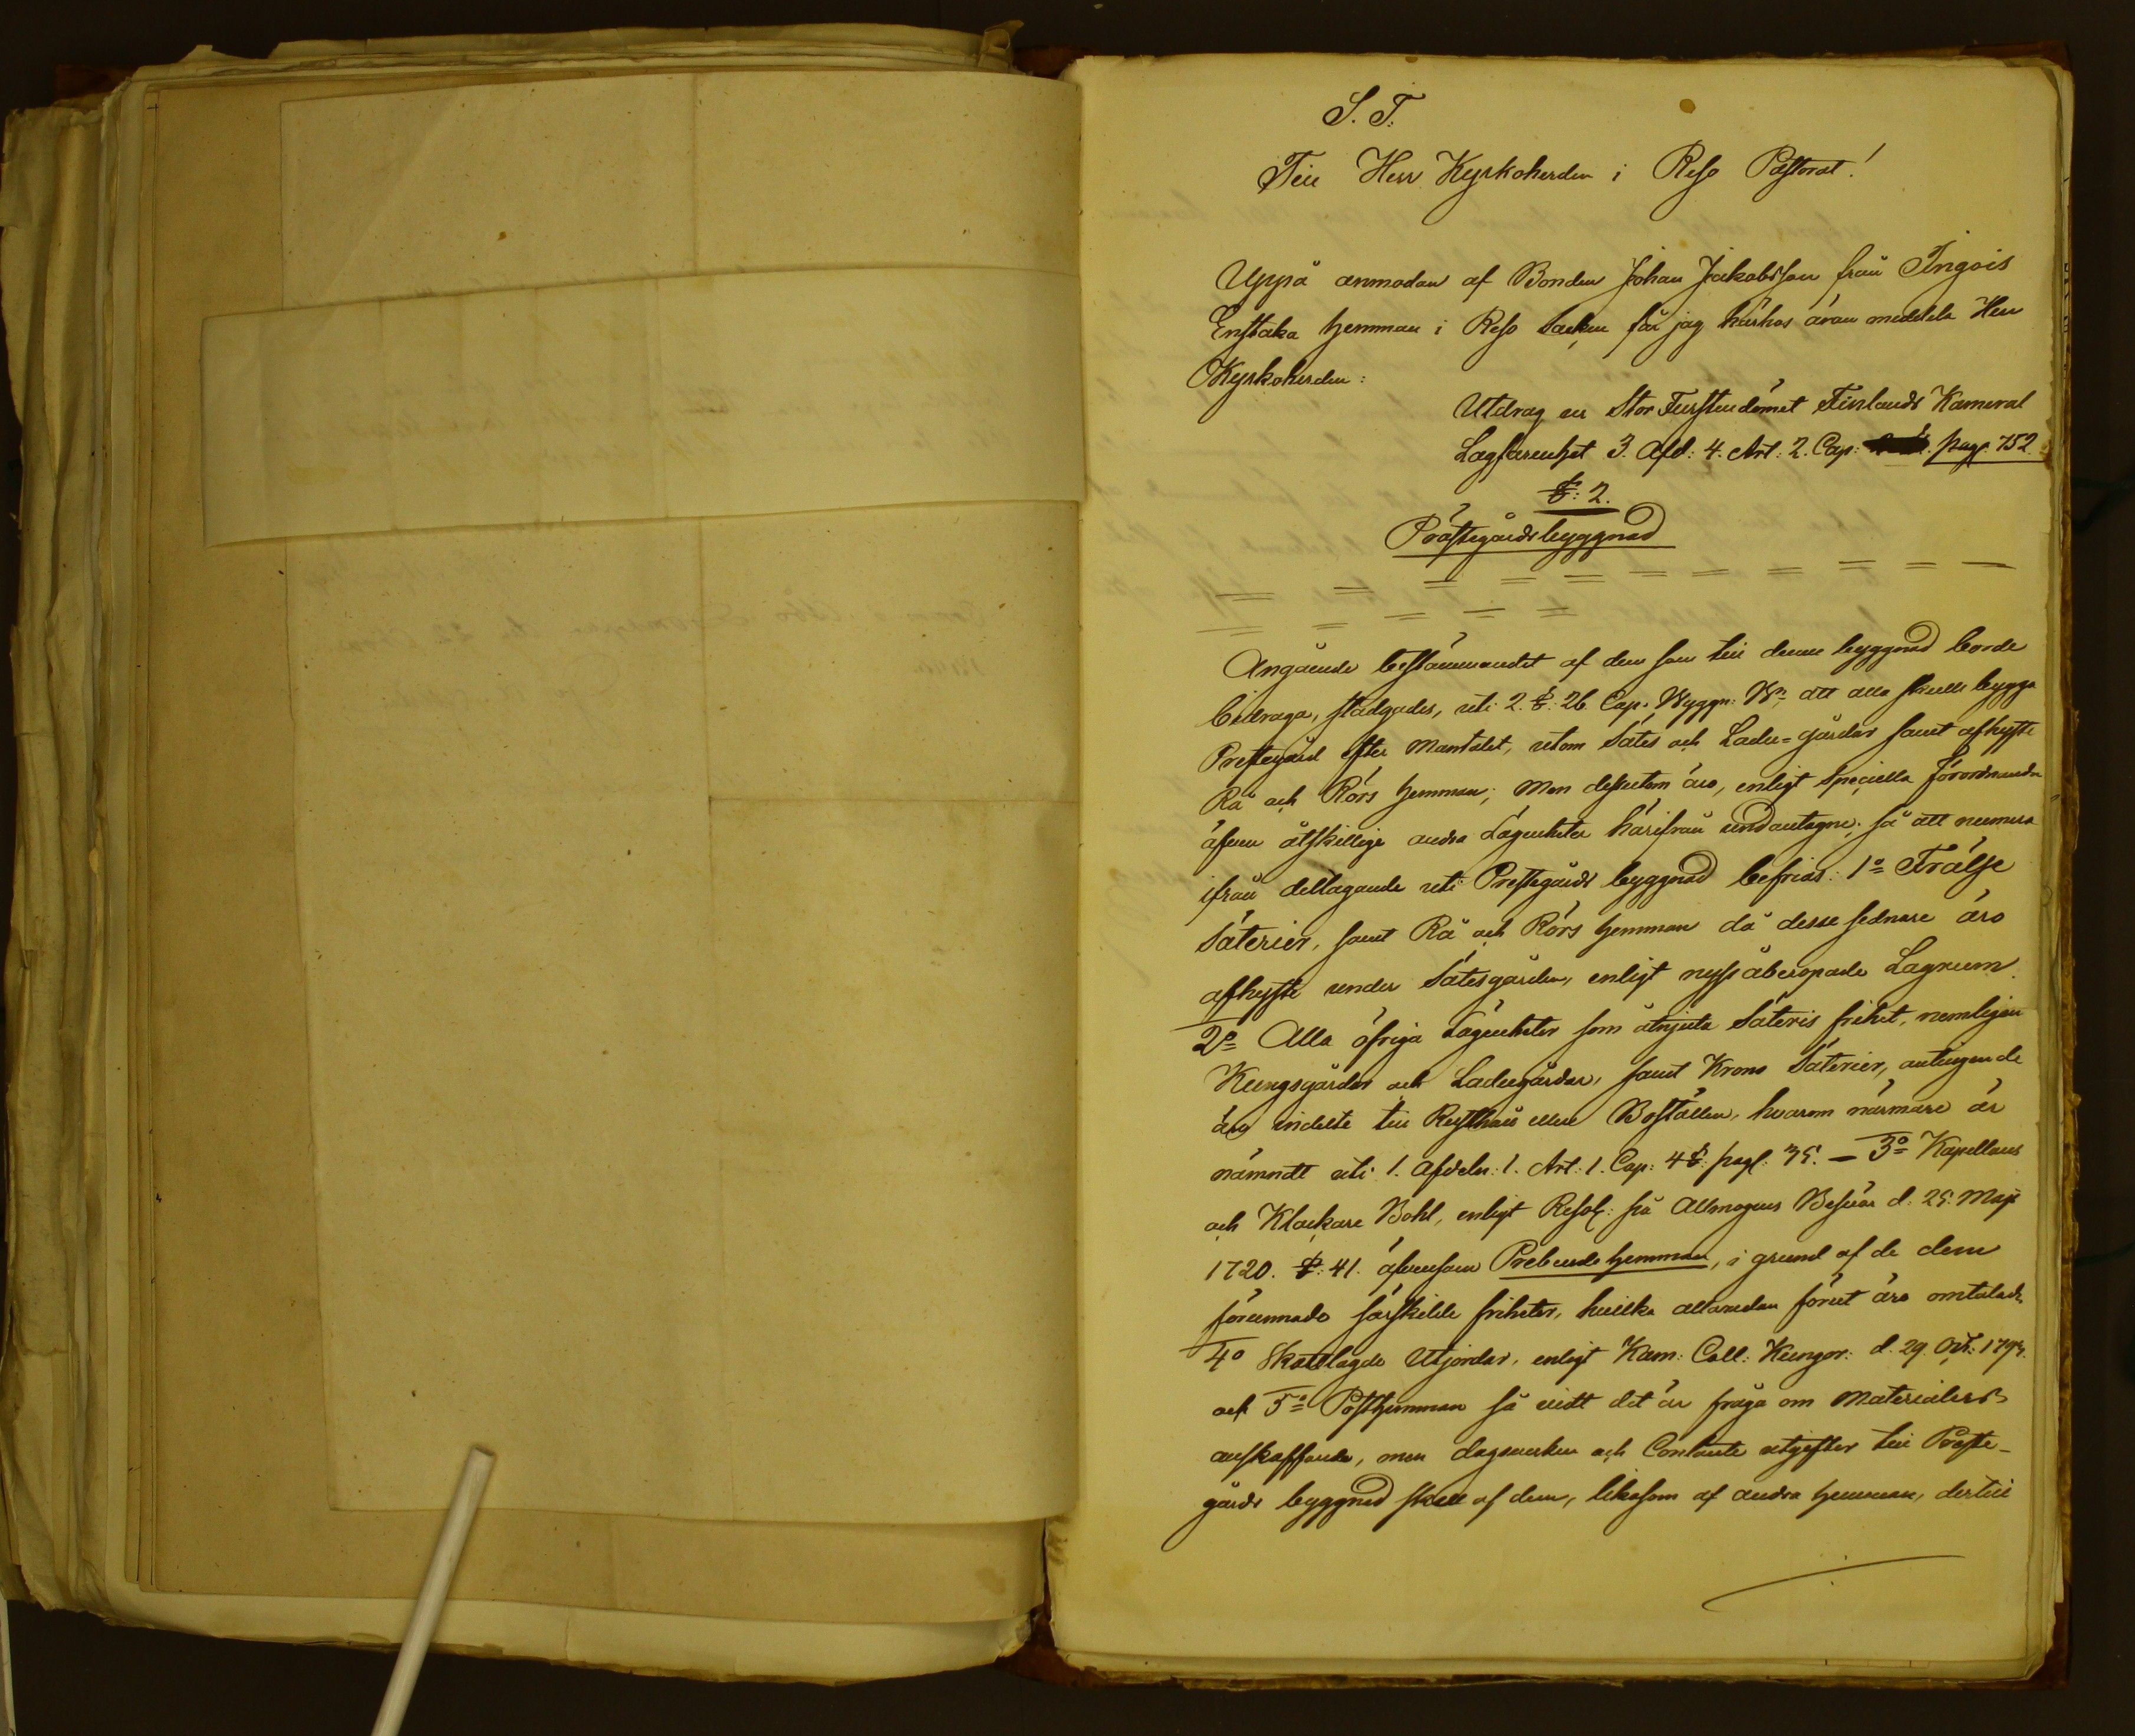 S. T.
Till Herr Kyrkoherden i Reso Pastorat!
Uppå anmodan af Bonden Johan Jakobsson från Ingois
Enstaka hemman i Reso Socken får jag härhos äran meddela Herr
Kyrkoherden:
Utdrag ur Stor Furstendömet Finlands Kameral
Lagfarenhet 3. Afd: 4. Art: 2. Cap: pag. 752
§: 2.
Prästegårdsbyggnad
Angående bestämmandet af dem som till denne byggnad borde
bidraga, stadgades, uti 2. §: 26 Cap. Byggn: B., att alla skulle bygga
Prestegård efter Mantalet, utom Sätes och Ladu=gårdar samt afhyste
Rå och Rörs hemman; Men dessutom äro, enligt speciella förordnanden
äfven åtskillige andra Lägenheter härifrån undantagne; så att numera
ifrån deltagande uti Prestegårds byggnad befrias: 1º Frälse
Säterier, samt Rå och Rörs hemman då desse sednare äro
afhyste under Sätesgården, enligt nyss åberopade Lagrum.
2º Alla öfriga Lägenheter som åtnjuta Säteris frihet, nemligen
Kungsgårdar och Ladugårdar, samt Krono Säterier, antingen de
äro indelte till Rusthåll eller Boställen, hvarom närmare är
nämndt uti 1. Afdeln: 1. Art: 1. Cap: 4 §: pag: 35. — 3º Kapellans
och Klockare Bohl, enligt Resol: på Allmogens Besvär d: 25: Maji
1720. §: 41. äfvensom Prebende hemman, i grund af de dem
förunnade särskilde friheter, hvilka allaredan förut äro omtalade
4º Skattlagde Utjordar, enligt Kam: Coll: Kungör: d. 29. Oct: 1794.
och 5º Posthemman så vidt det är fråga om Materialiers
anskaffande, men dagsverken och Contante utgifter till Preste-
gårds byggnad skall af dem, likasom af andra hemman, dertill